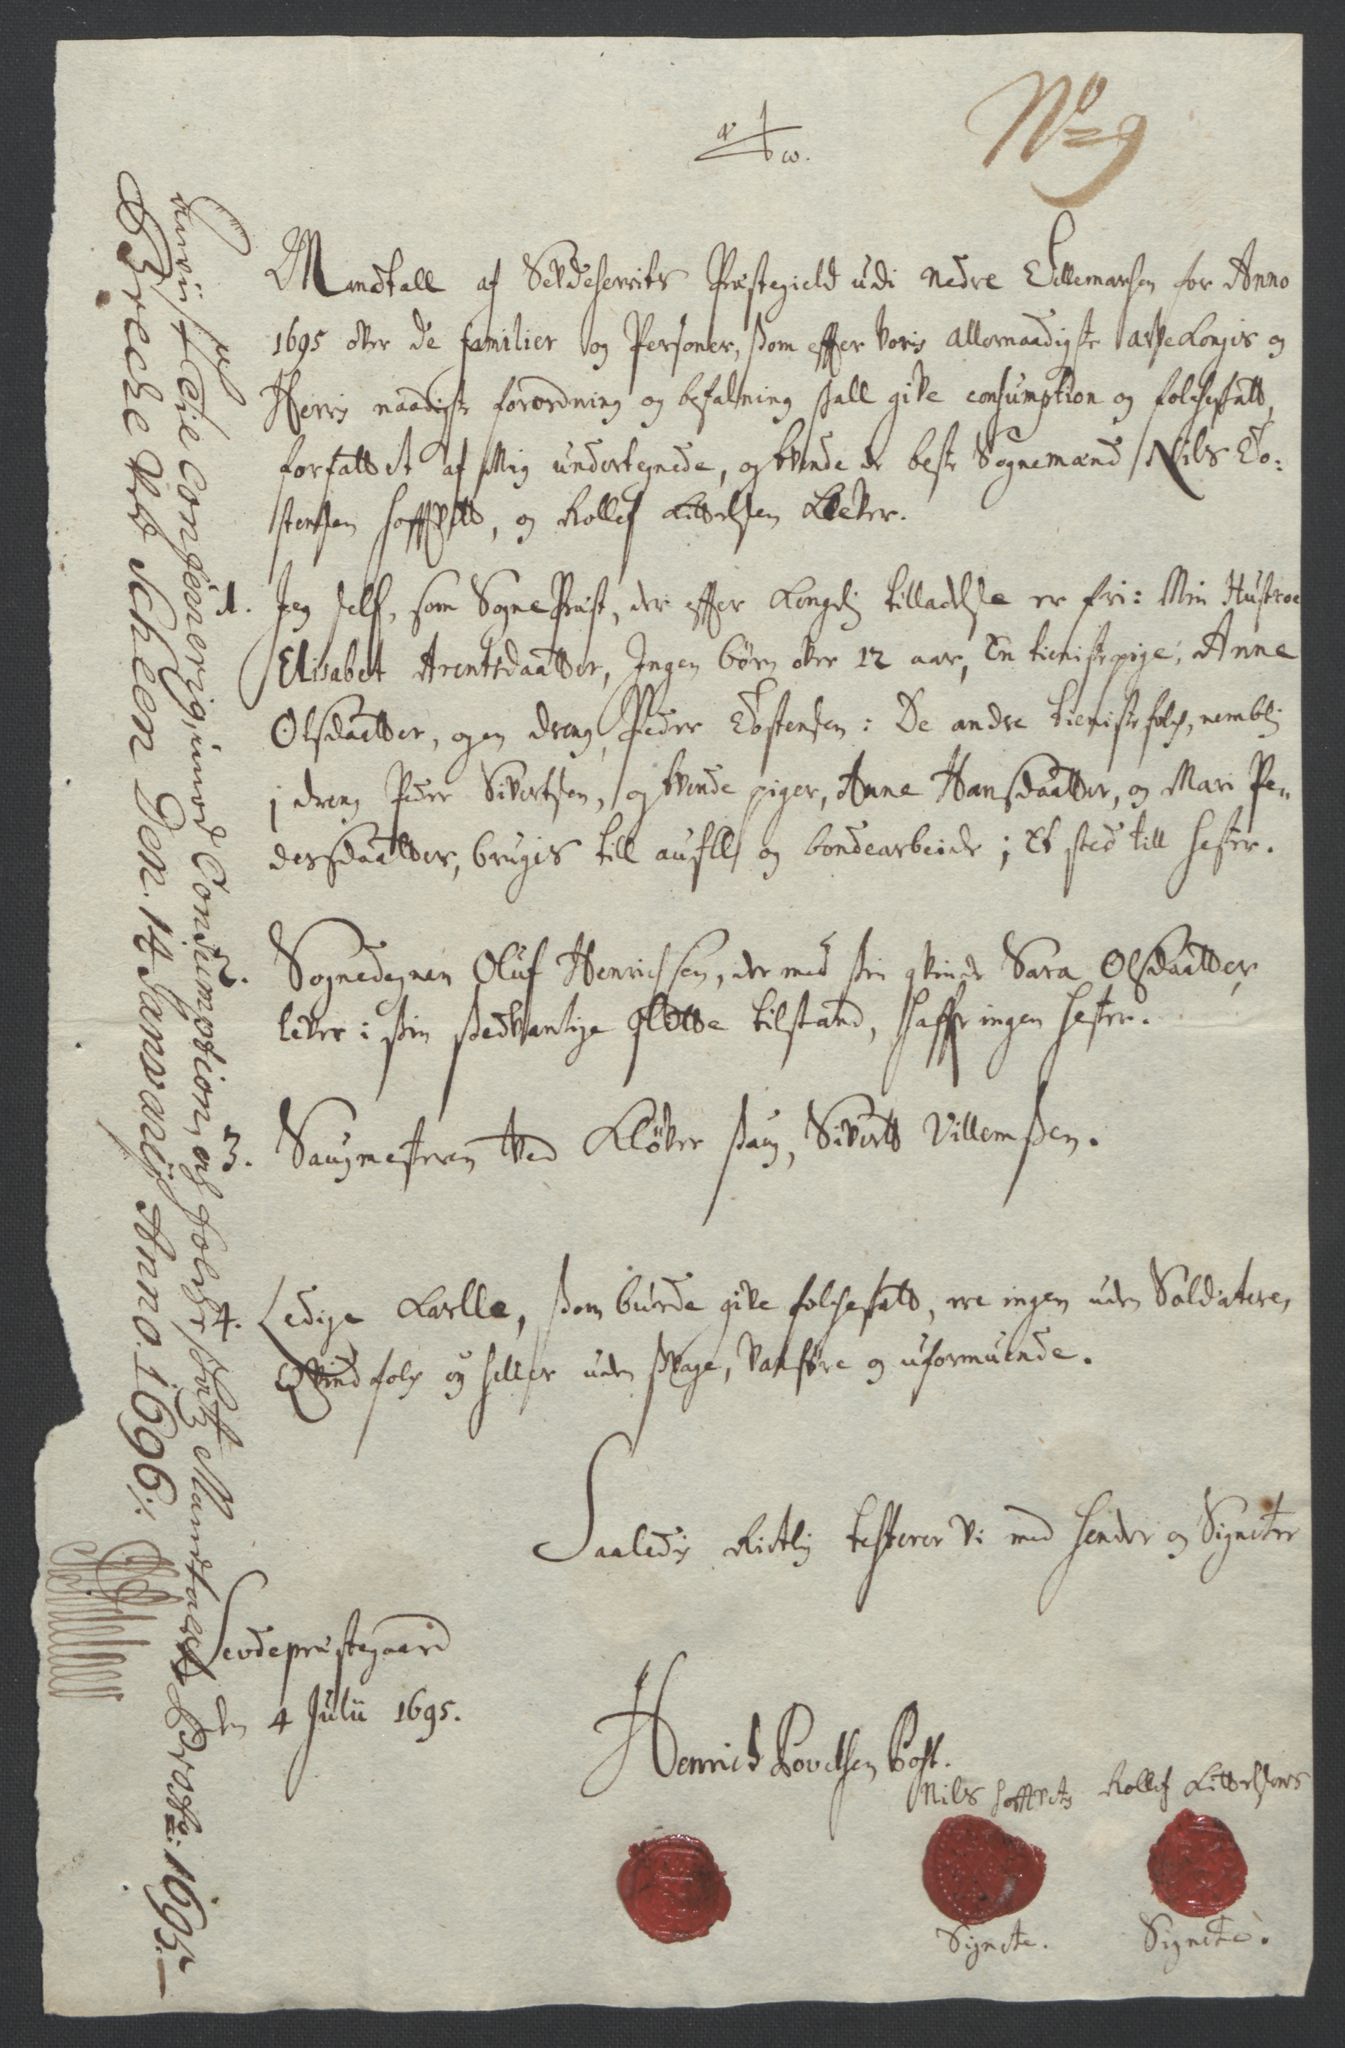 No 9
Mandtall af Sevdeherrits Præstegield udi Nedre Tillemarken for Anno
1695 over de familier og Personer, som effter voris allernaadigste arfve Kongis og
Herris naadigste forordning og befalning skall give consumption og folcheskatt,
forfattet af Mig undertegnede, og tvende de beste Sognemænd Nils To-
stensen Hoffvett, og Rollef Kittelsen Klever.
1. Jeg self, som SognePræst, der effter Kongelig tilladelse er fri: Min Hustroe
Elisabet Arentsdaatter, Ingen børn over 12 aar, En tieniste pige, Anne
Olsdaatter, og en dreng, Peder Tostensen: De andre tieniste folch, nemblig
1 dreng Peder Sivertsen, og tvende piger, Anne Hansdaatter, og Mari Pe-
dersdaatter, bruges till aufll og bondearbeide; Et sted till hester.
2. Sognedegnen Oluf Henrichsen, der med sin qvinde Sara Olsdaatter,
lever i sin sedvanlige slette tilstand, haffr ingen hester.
3. Saugmesteren ved Kløver Saug, Sivertt Villemsen.
4. Ledige Karlle, som burde give folcheskatt, ere ingen uden Soldatere,
Qvindfolch ey heller uden svage, vanføre og uformuende.
Saaledis Rictig testerer vi med hender og Signeter
Sevdepræstegaard
den 4 Julii 1695.
Henrich Povelsen Bost.
Nils Hoffvets Rollef Kittelsens
Signete. Signete.
til Conferering, imod Consumption, og Folche skatz Mandtallet Pro Ao: 1695
Brecke ved Scheen Den. 14 Januarij Anno. 1696